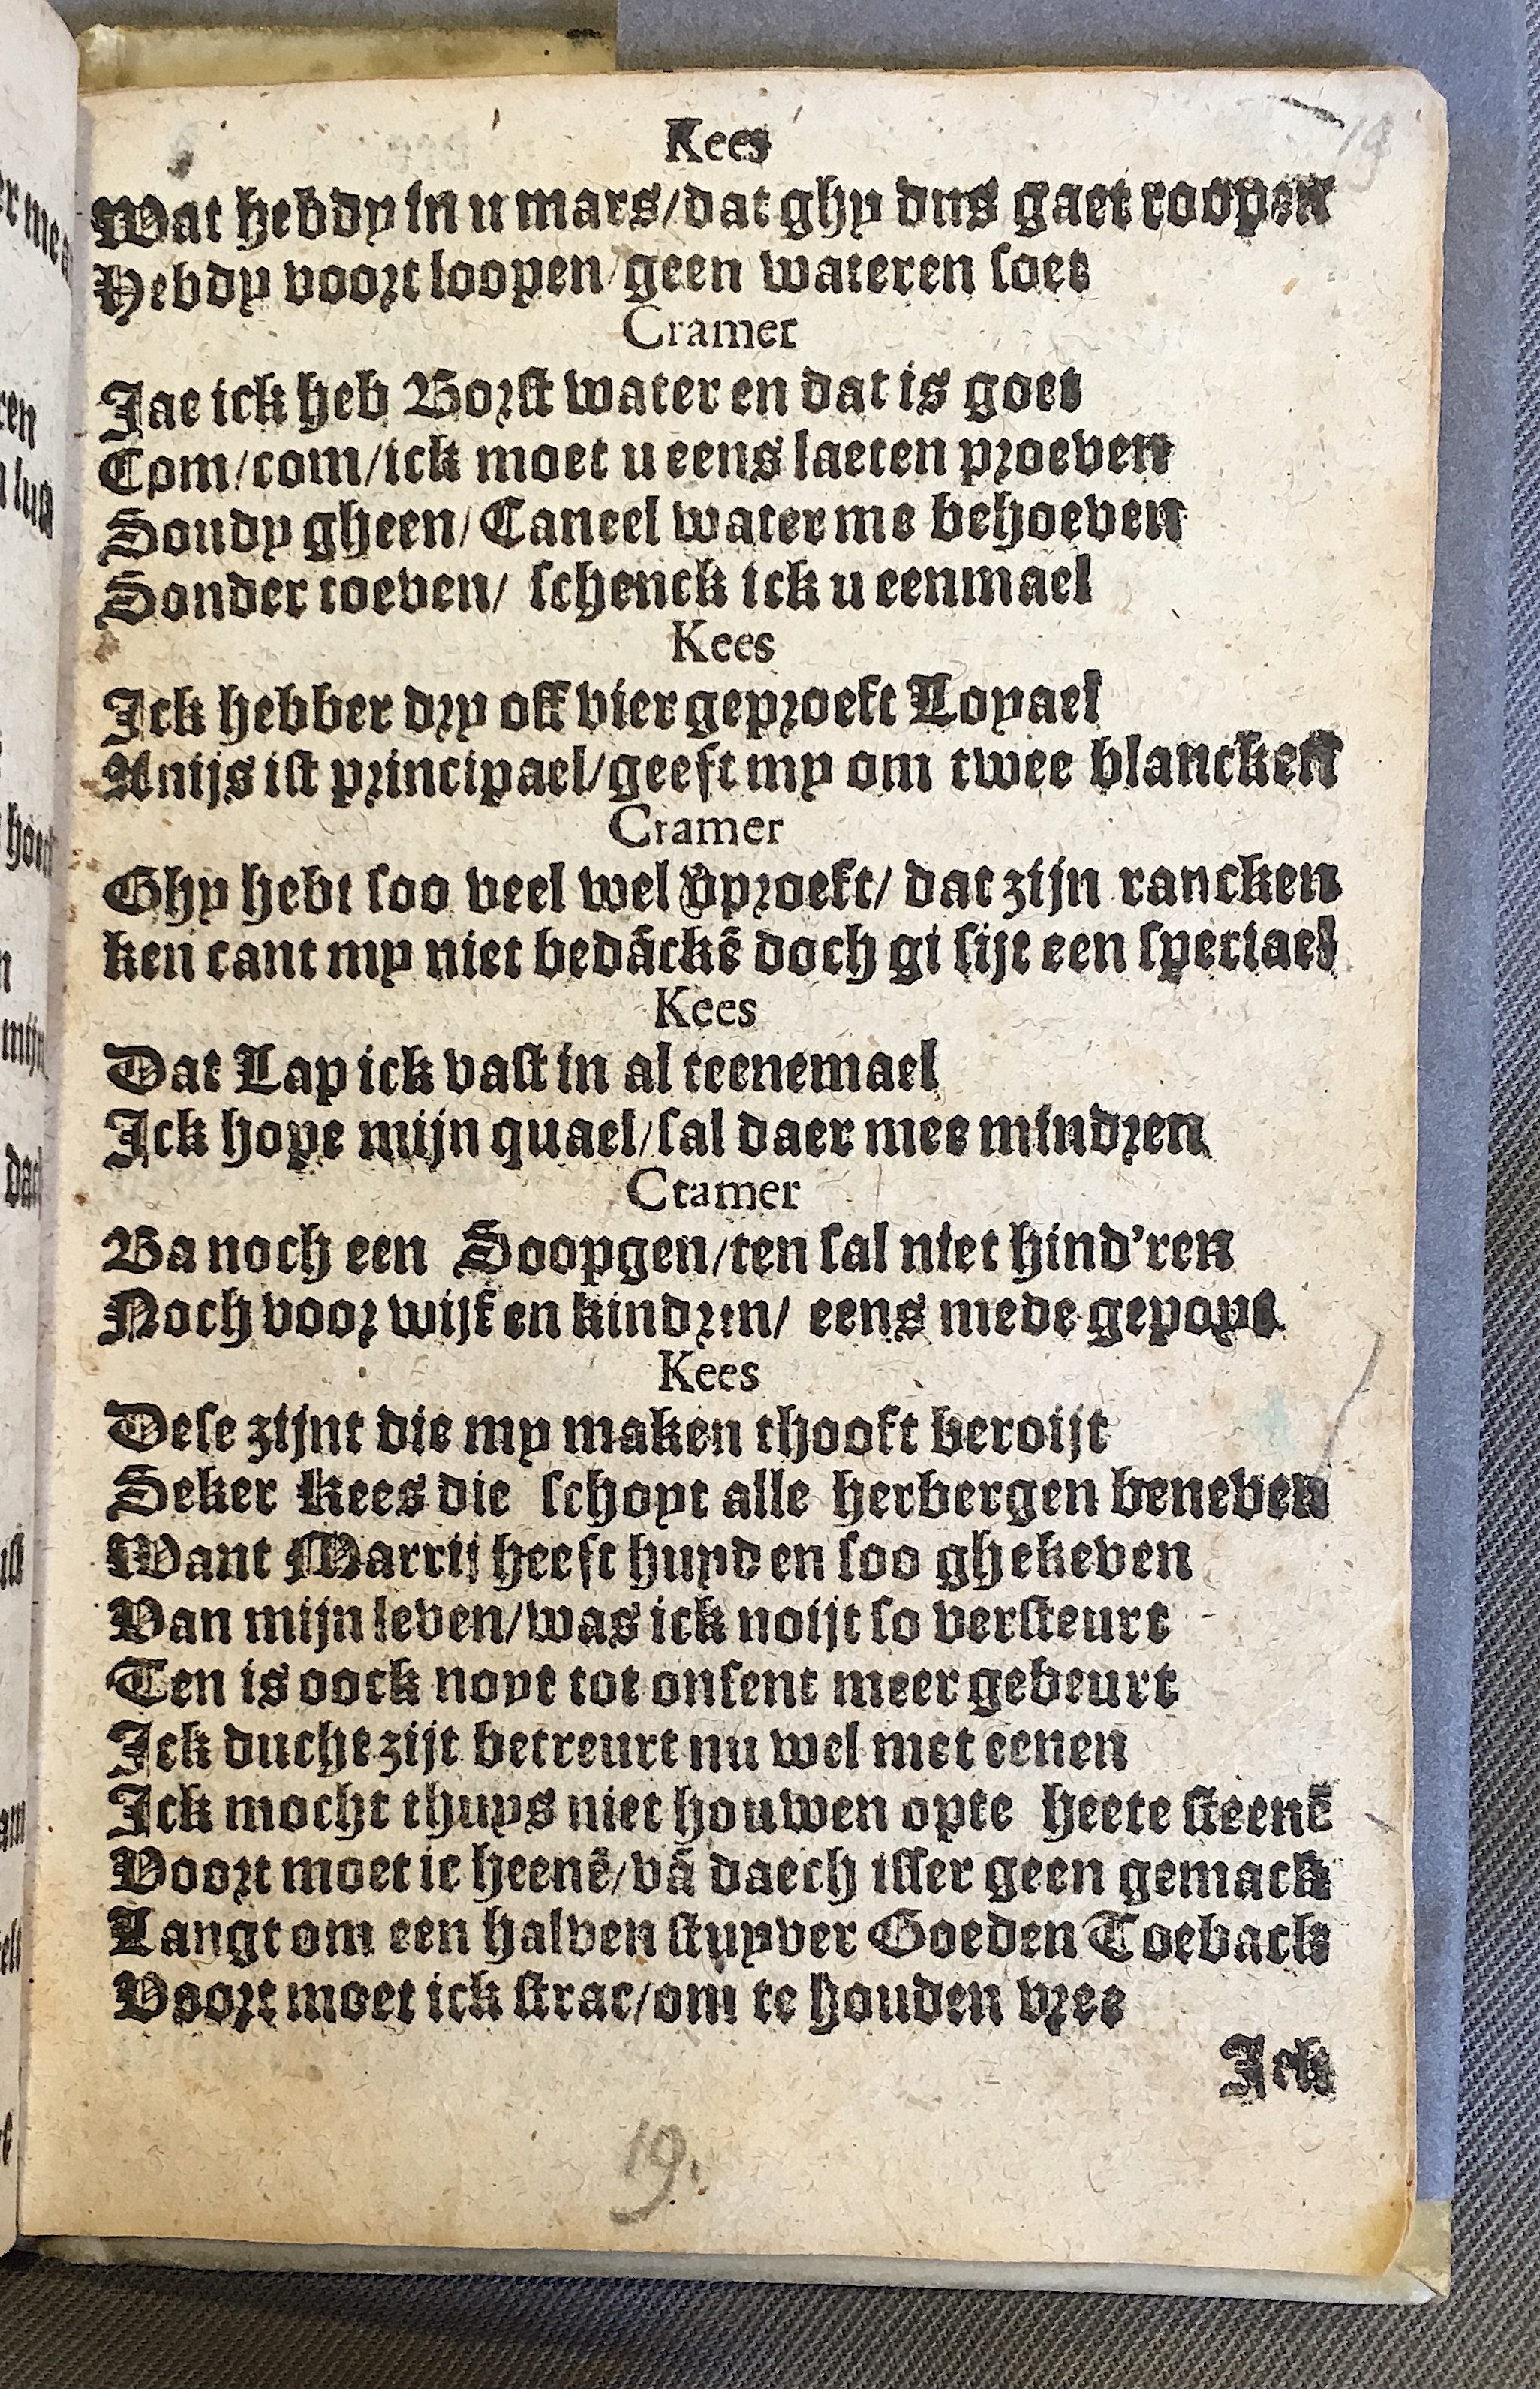 19
Kees
Wat hebdy in u mars/dat ghy dus gaet roopen
Hebdy voort loopen/geen wateren soet
Cramer
Jae ick heb Borst water en dat is goet
Com/com/ick moet u eens laeten proeven
Soudy gheen/Caneel water me behoeven
Sonder toeven/ schenck ick u eenmael
Kees
Ick hebber dry off vier geproeft Loyael
Anijs ist principael/geeft my om twee blancken
Cramer
Ghy hebt soo veel wel vproeft/ dat zijn rancken
ken cant my niet bedãckẽ doch gi sijt een speciael
Kees
Dat Lap ick vast in al teenemael
Ick hope mijn quael/sal daer mee mindren
Cramer
Ba noch een Soopgen/ten sal niet hind'ren
Noch voor wijf en kindren/ eens mede gepoyt
Kees
Dese zijnt die my maken thooft beroijt
Seker Kees die schoyt alle herbergen beneven
Want Marrij heeft huyden soo ghekeven
Van mijn leven/was ick noijt so versteurt
Ten is oock noyt tot onsent meer gebeurt
Ick ducht zijt betreurt nu wel met eenen
Ick mocht thuys niet houwen opte heete steenẽ
Voort moet ic heenẽ/vã daech isser geen gemack
Langt om een halven stuyver Goeden Toeback
Voort moet ick strac/om te houden vree
Ick
19.